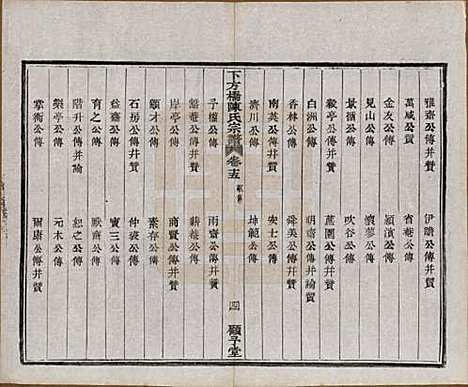 雅齋公傳并贊 伊蹟公傳并贊
萬咸公贊 省菴公傳
金友公傳 潁濱公傳
見山公傳 懷蓼公傳
景循公傳 吹谷公傳
毅亭公傳并贊 蕙圃公傳并贊
白洲公傳 朗齋公傳并論贊
香林公傳 舜美公傳并贊
南英公傳并贊 安士公傳
濟川公傳 坤範公傳
下方橋陳氏宗譜 卷十五 四 顧予堂
子權公傳 雨齋公傳并贊
谿菴公傳并贊 耕菴公傳
岸亭公傳 商賢公傳并贊
顧才公傳 素存公傳
石房公傳并贊 仲裘公傳
益齋公傳 寶三公傳
育之公傳 獻齋公傳
階升公傳并論 恕之公傳
樂亭公傳 元木公傳
掌衡公傳 爾康公傳并贊